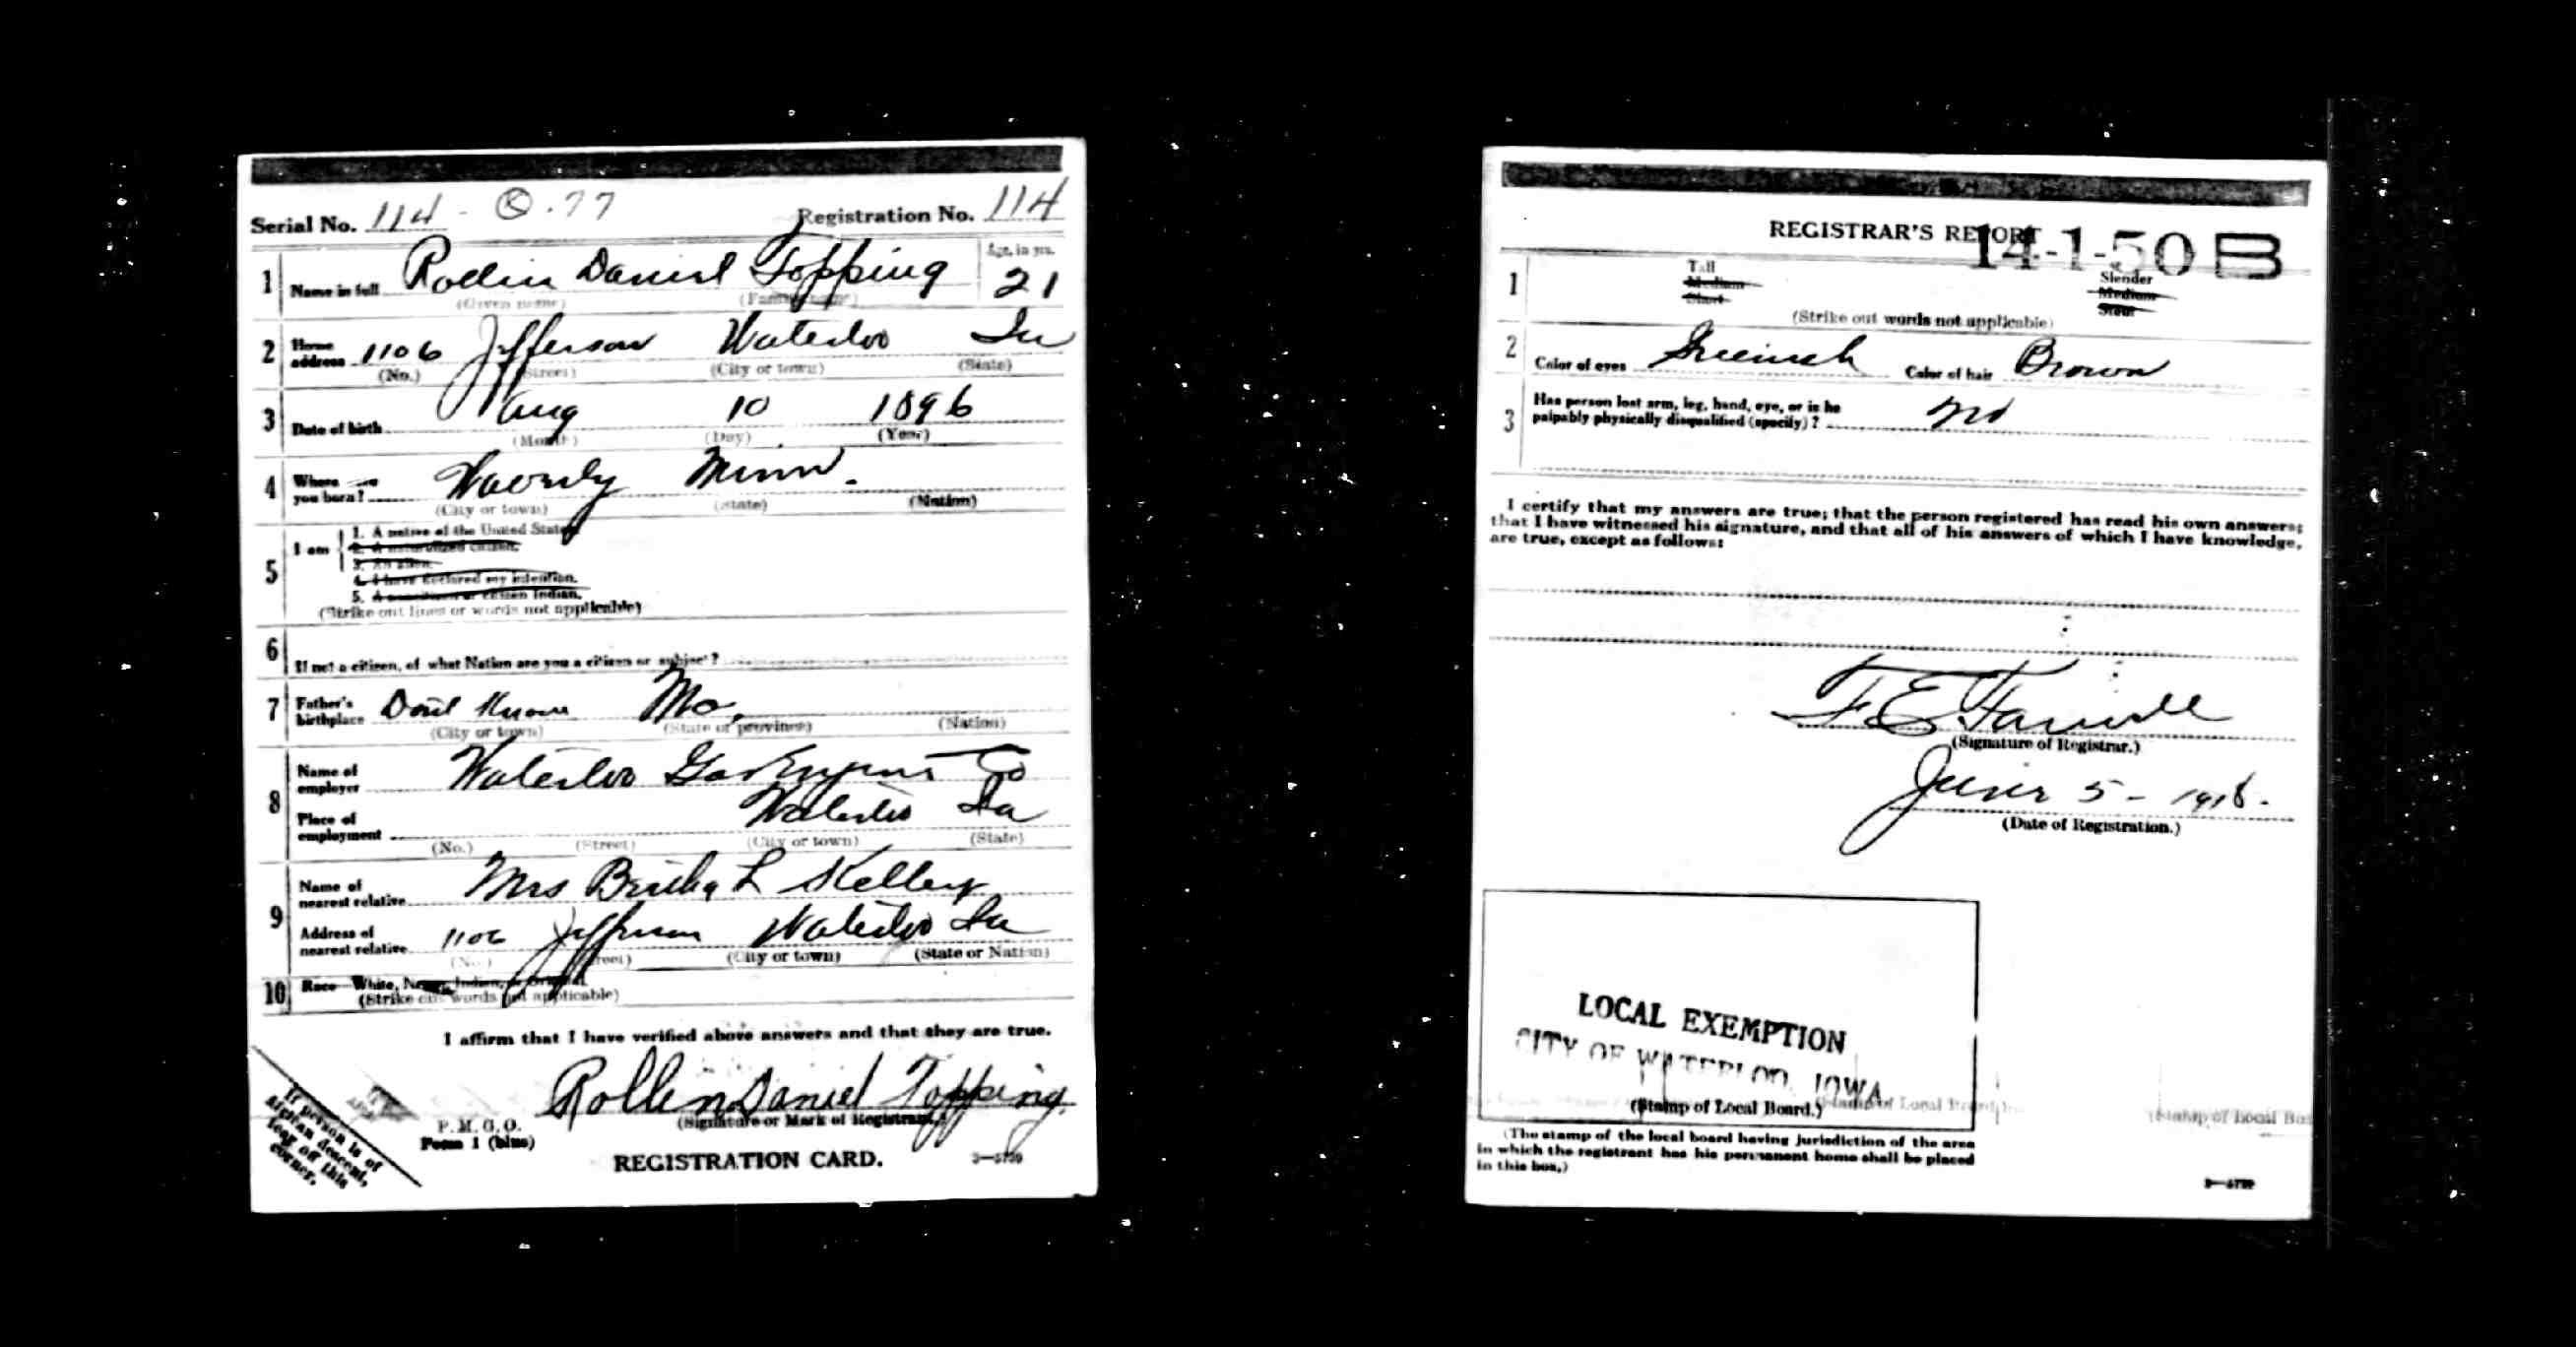 Serial No. 114 - 77 Registration No. 114
1 Name in full Rollin Daniel Topping Age, in yrs. 21
(Given name) (Family name)
2 Home address 1106 Jefferson Waterloo Ia
(No.) (Street) (City or town) (State)
3 Date of birth Aug 10 1896
(Month) (Day) (Year)
4 Where you born? Waverly Minn.
(City or town) (State) (Nation)
5 I am 1. A native of the United States
2. A naturalized citizen.
3. An alien.
4. I have declared my intention.
5. A noncitizen or citizen Indian.
(Strike out lines or words not applicable)
6 If not a citizen, of what Nation are you a citizen or subject?
7 Father's birthplace Don't Know Mo.
(City or town) (State or province) (Nation)
8 Name of employer Waterloo Gas Engine Co
Place of employment Waterloo Ia
(No.) (Street) (City or town) (State)
9 Name of nearest relative Mrs Bertha L Kelley
Address of nearest relative 1106 Jefferson Waterloo Ia
(No.) (Street) (City or town) (State or Nation)
10 Race—White, Negro, Indian, or Oriental
(Strike out words not applicable)
I affirm that I have verified above answers and that they are true.
Rollin Daniel Topping
(Signature or Mark of Registrant.)
P. M. G. O.
Form 1 (blue)
REGISTRATION CARD. 3—5739
If person is of
African descent,
tear off this
corner.
REGISTRAR'S REPORT
14-1-50 B
1 Tall Slender
Medium Medium
Short Stout
(Strike out words not applicable)
2 Color of eyes Greenish Color of hair Brown
3 Has person lost arm, leg, hand, eye, or is he
palpably physically disqualified (specify)? No
I certify that my answers are true; that the person registered has read his own answers;
that I have witnessed his signature, and that all of his answers of which I have knowledge,
are true, except as follows:
F. E.
(Signature of Registrar.)
June 5 - 1918.
(Date of Registration.)
LOCAL EXEMPTION
CITY OF WATERLOO, IOWA
(Stamp of Local Board.)
(Stamp of Local Board)
(Stamp of Local Boa
(The stamp of the local board having jurisdiction of the area
in which the registrant has his permanent home shall be placed
in this box.)
3—5739